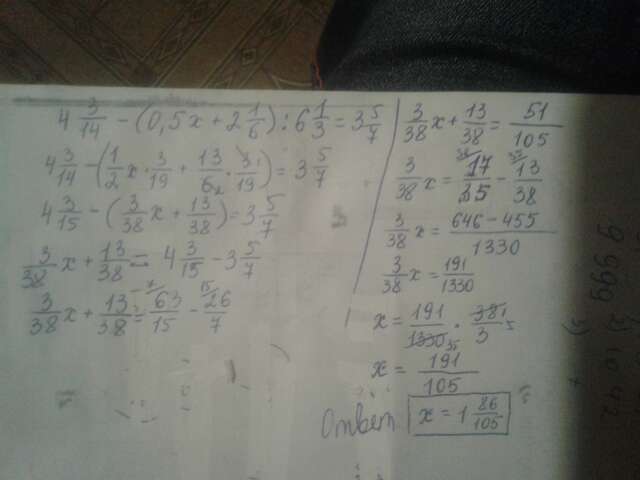 4 3/14 - (0,5x + 2 1/6) : 6 1/3 = 3 5/7
4 3/14 - (1/2 x · 3/19 + 13/6 · 3/19) = 3 5/7
4 3/15 - (3/38 x + 13/38) = 3 5/7
3/38 x + 13/38 = 4 3/15 - 3 5/7
3/38 x + 13/38 = 63/15 - 26/7
3/38 x + 13/38 = 51/105
3/38 x = 17/35 - 13/38
3/38 x = 646 - 455/1330
3/38 x = 191/1330
x = 191/1330 · 38/3
x = 191/105
Ответ x = 1 86/105